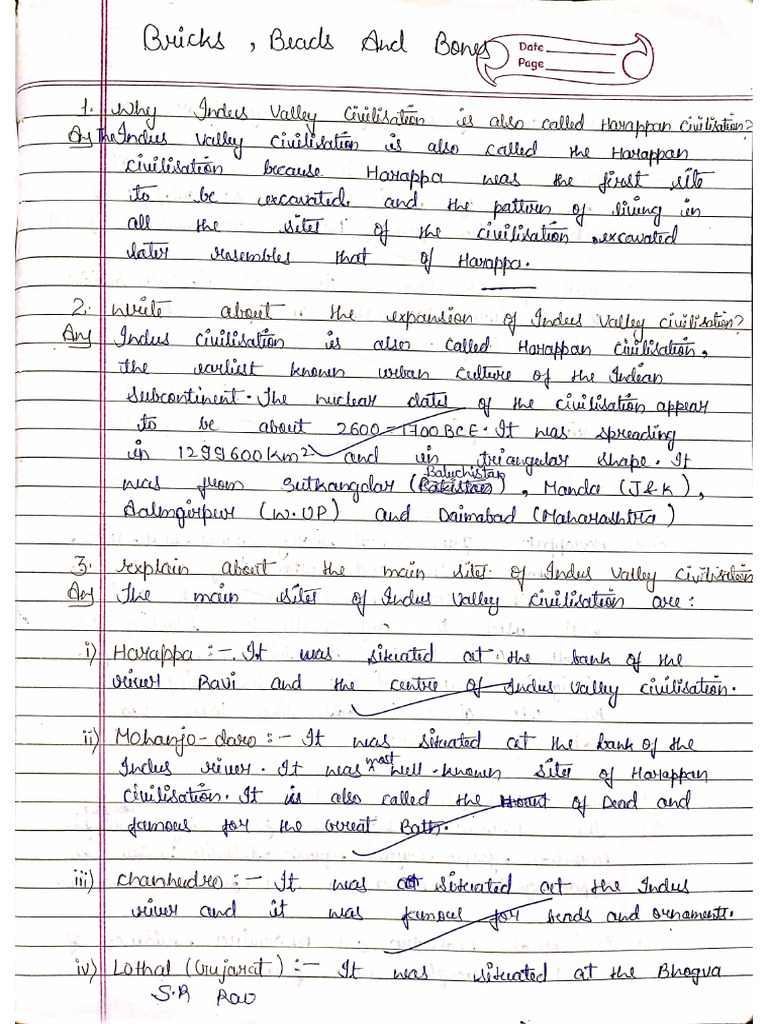 Bricks, Beads And Bones
Date
Page
1. Why Indus Valley Civilisation is also called Harappan Civilisation?
Ans The Indus Valley Civilisation is also called the Harappan
Civilisation because Harappa was the first site
to be excavated and the pattern of living in
all the sites of the civilisation, excavated
later resembles that of Harappa.
2. Write about the expansion of Indus Valley Civilisation?
Ans Indus Civilisation is also called Harappan Civilisation,
the earliest known urban culture of the Indian
Subcontinent. The nuclear dates of the civilisation appear
to be about 2600-1700 BCE. It was spreading
in 1299600 Km² and in triangular shape. It
was from Sutkangdar (Baluchistan), Manda (J&K),
Aalmgirpur (W.UP) and Daimabad (Maharashtra)
3. explain about the main sites of Indus Valley Civilisation
Ans The main sites of Indus Valley Civilisation are:
i) Harappa :-. It was situated at the bank of the
river Ravi and the centre of Indus Valley Civilisation.
ii) Mohanjo-daro :- It was situated at the bank of the
Indus river. It was most well-known sites of Harappan
Civilisation. It is also called the Mount of Dead and
famous for the Great Bath.
iii) Chanhudro :- It was situated at the Indus
river and it was famous for beads and ornaments.
iv) Lothal (Gujarat) :- It was situated at the Bhogva
S.R Rao